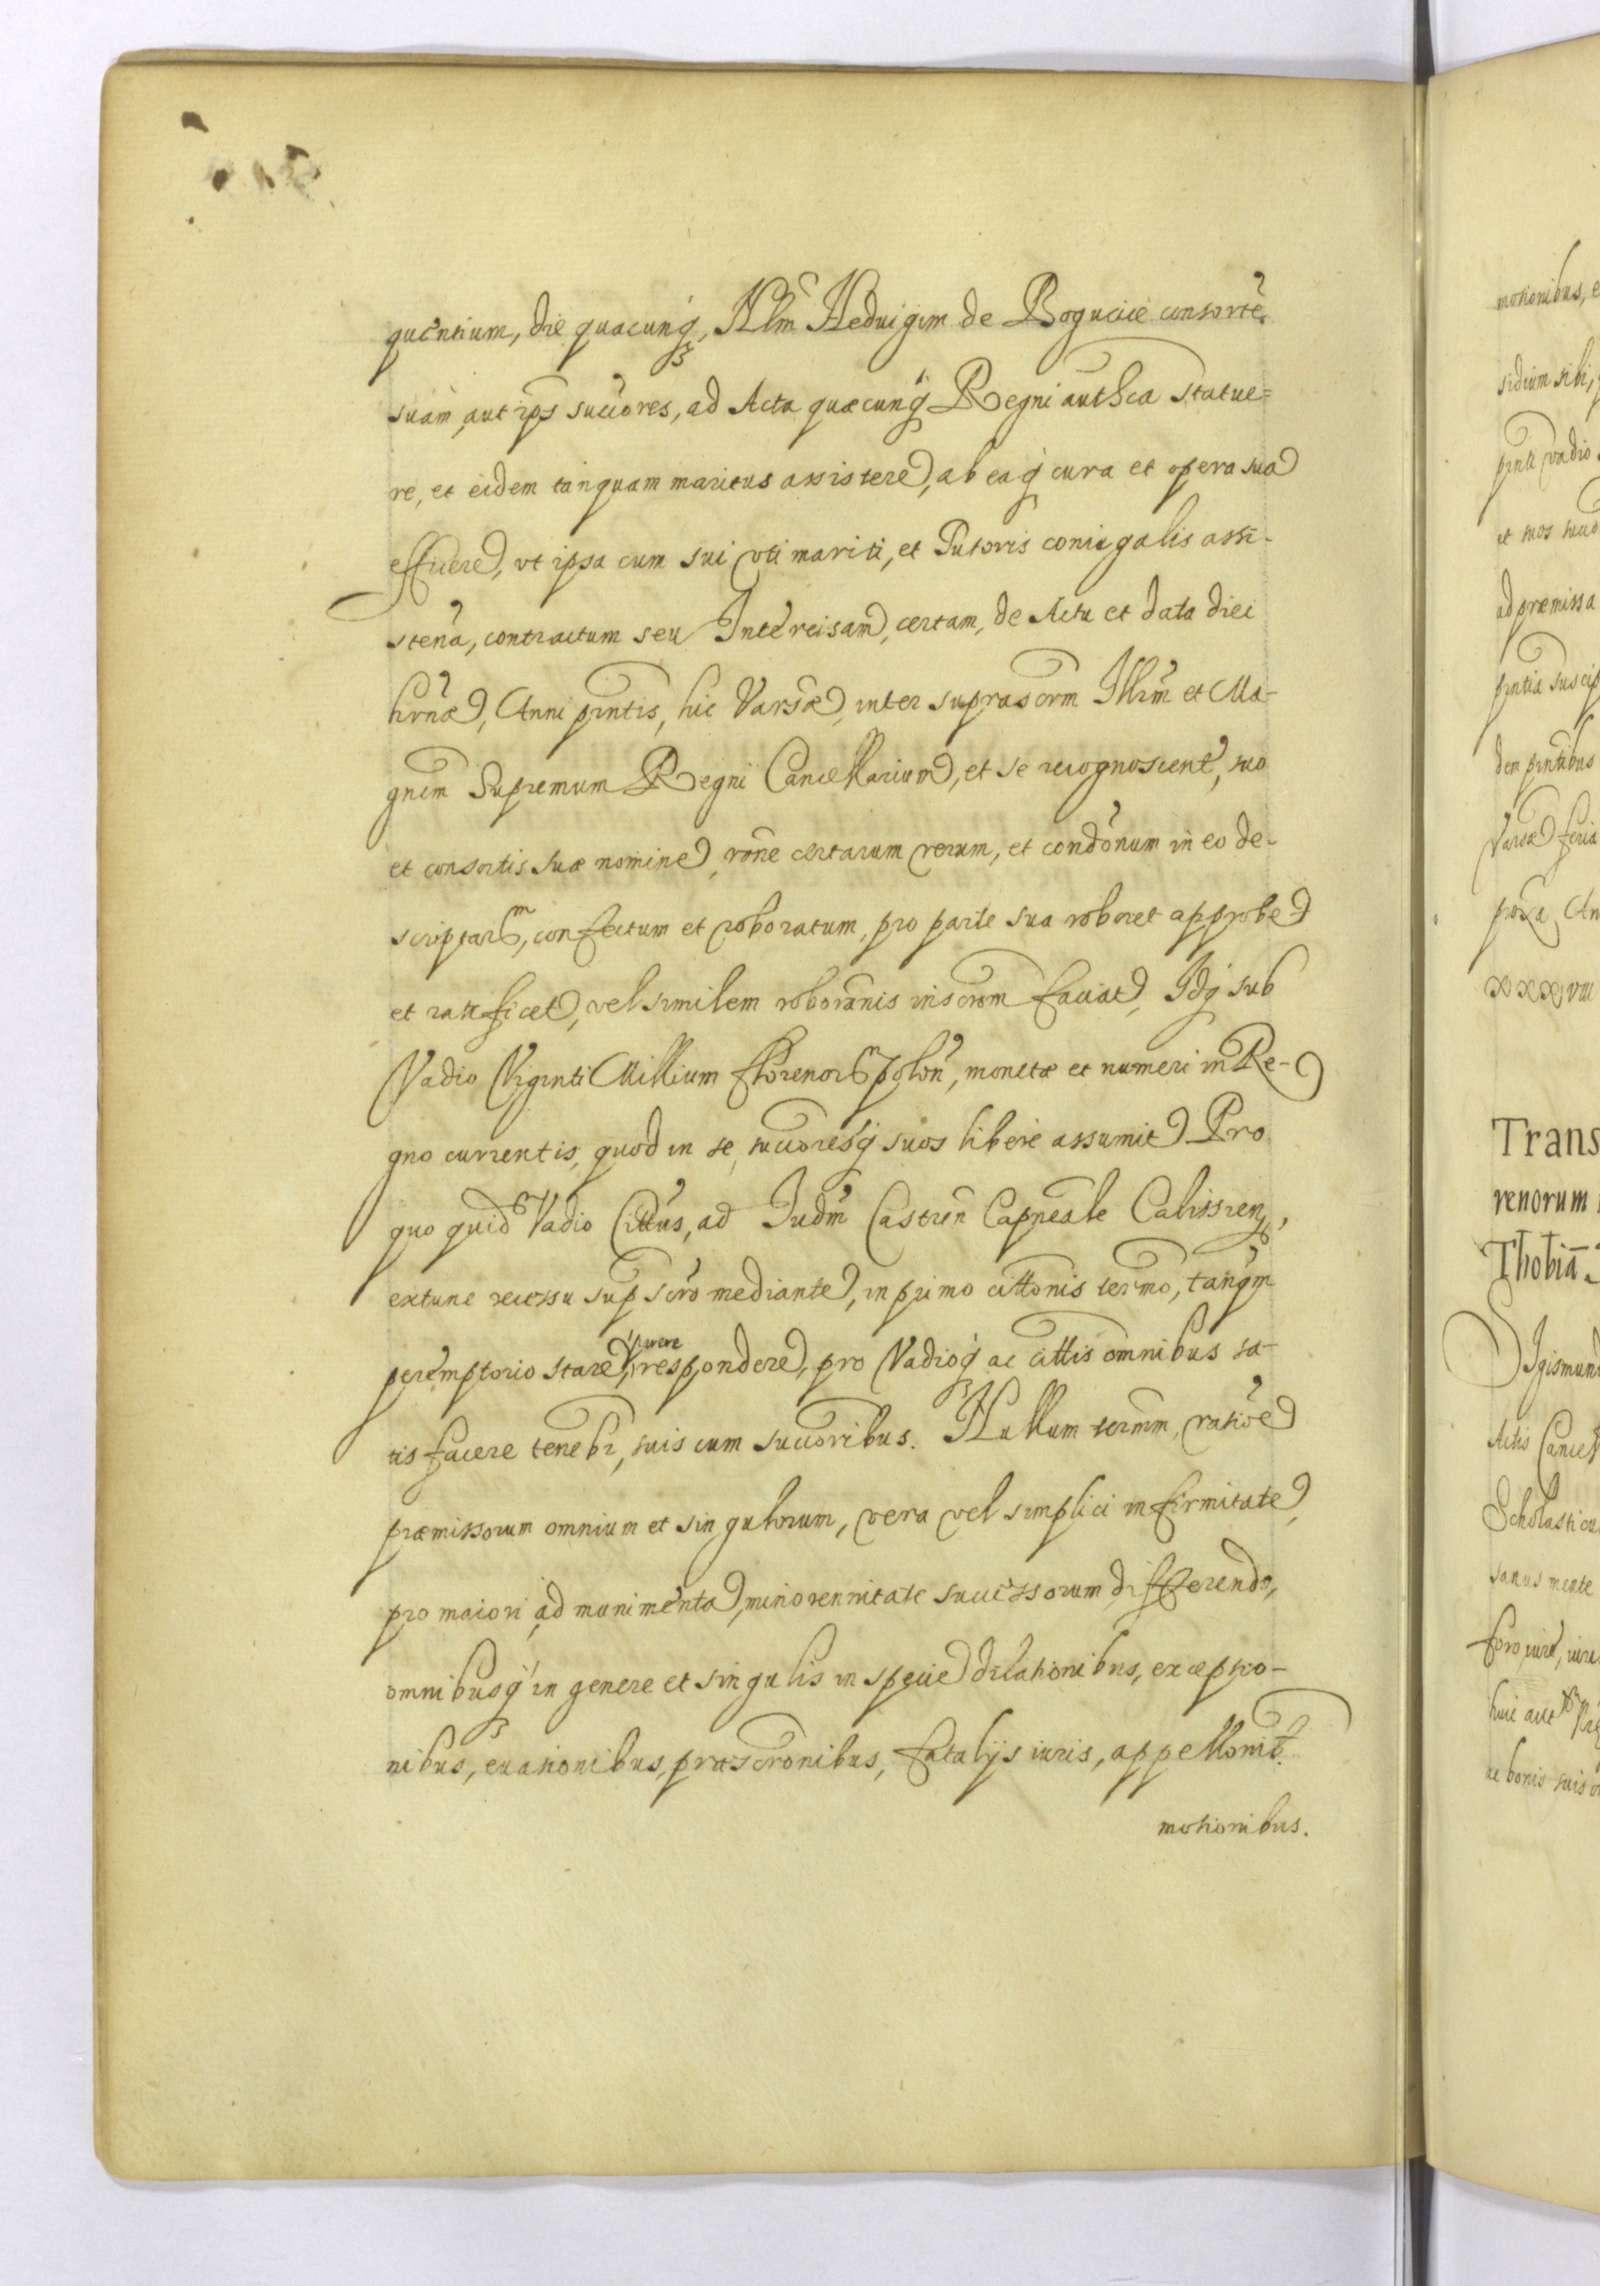 quentium, die quacunq, Nlm Hedvigim de Bogucicé consorte
suam, aut ips succores, ad Acta quæcunq Regni authca statue=
re, et eidem tanquam maritus assistere, ab eaq cura et opera sua
efficere, vt ipsa cum sui vti mariti, et Tutoris coniugalis assi-
stena, contractum seu Intercisam, certam, de Actu et data diei
hirnæ, Anni pntis, hic Varsæ, inter suprascrm Illrm et Ma-
gncm Supremum Regni Cancellarium, et se recognoscent, suo
et consortis suæ nomine, rone certarum rerum, et condonum in eo de-
scriptar, confectum et roboratum, pro parte sua roboret approbe
et ratificet, vel similem roboranis inscrom faciat, Idq sub
Vadio Viginti Millium florenor polon, monetæ et numeri in Re-
gno currentis, quod in se, succoresq suos libere assumit Pro
quo quid Vadio Cittus, ad Iudm Castren Capneale Calissien,
extunc recessu sup scro mediante, in primo cittonis termo, tanqm
peremptorio stare, parere respondere, pro Vadioq ac cittis omnibus sa-
tis facere tenebr, suis cum succoribus. Nullum termm ratioe
præmissorum omnium et singulorum, vera vel simplici infirmitate,
pro maiori, ad munimenta, minorennitate successorum differendo,
omnibusq in genere et singulis in specie dilationibus, exceptio-
nibus, euationibus, præscronibus, fatalijs iuris, appellonib.
motionibus.
motionibus, e
sidium sibi,
pnti vadio
et suos succo
ad præmissa
pntia suscip
dem pntibus
Varsæ feria
proxa An
xxxviii
Trans
renorum
Thobia
Sigismund
Actis Cancel
Scholasticu
sanus mente
foro, iure, iure
huic aut
ac bonis suis